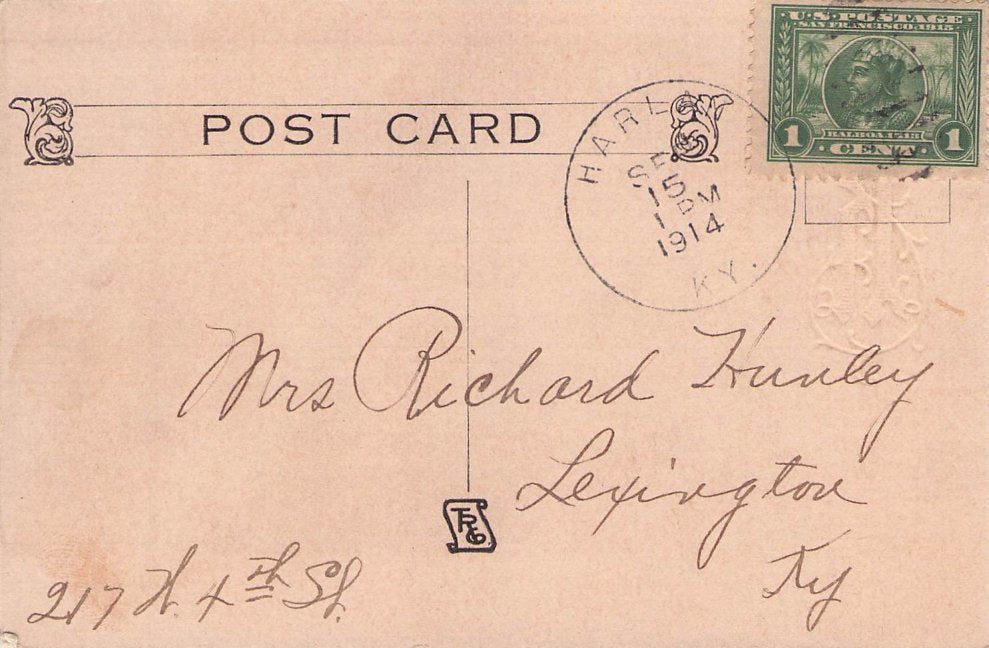 U.S. POSTAGE
SAN FRANCISCO 1915
BALBOA 1513
1 CENT 1
POST CARD
HARLAN
SEP
15
1 PM
1914
KY.
Mrs Richard Hunley
Lexington
Ky
217 W. 4th St.